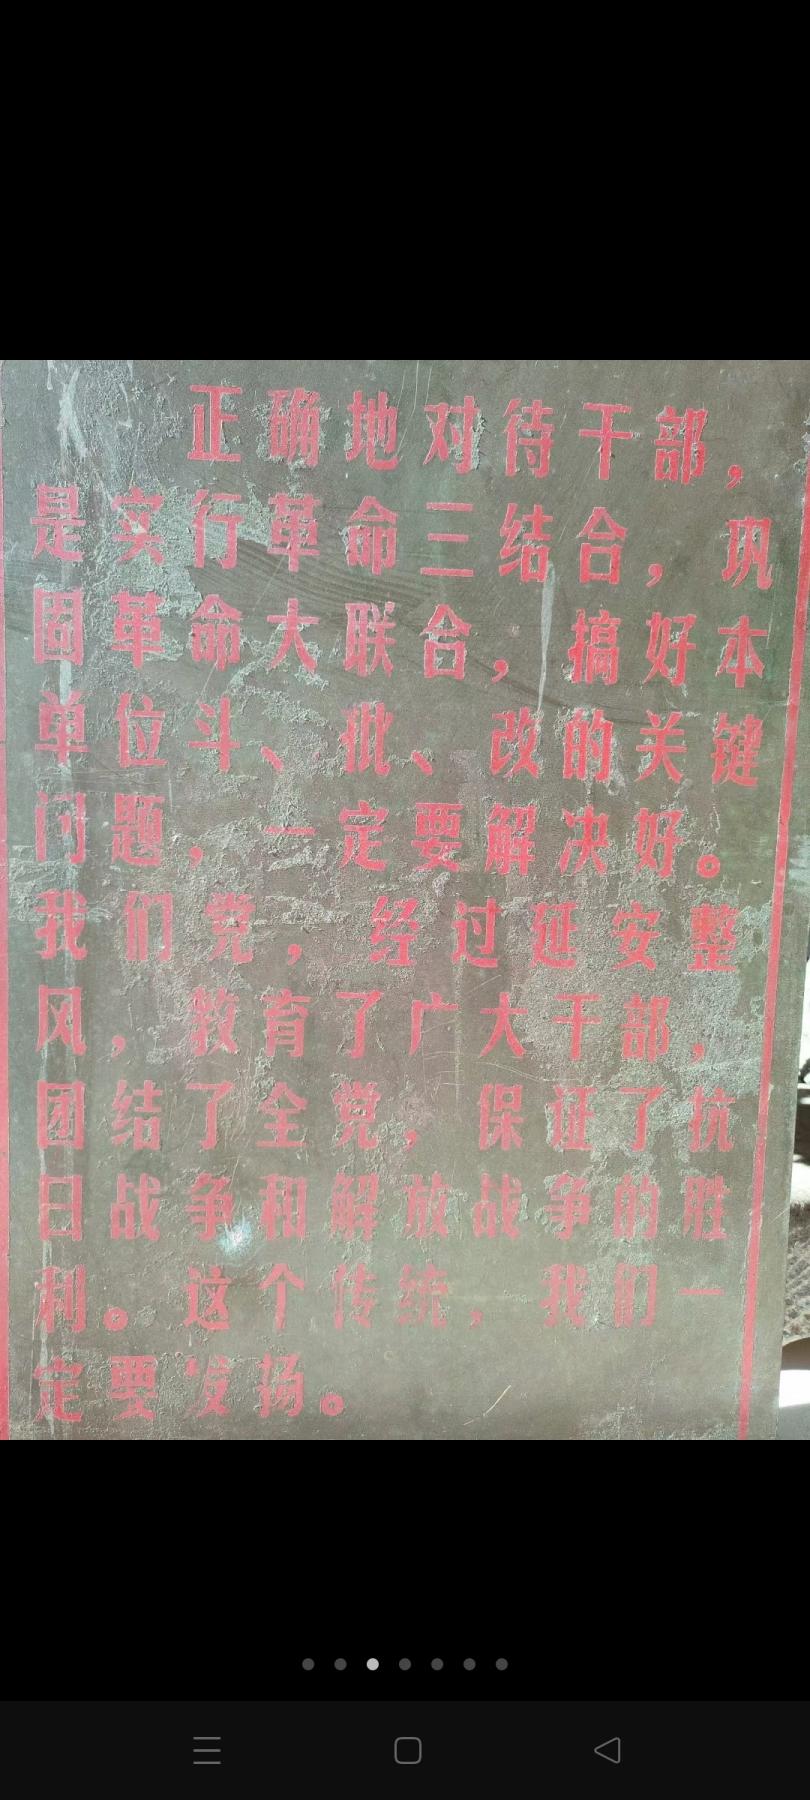 正确地对待干部，
是实行革命三结合，巩
固革命大联合，搞好本
单位斗、批、改的关键
问题，一定要解决好。
我们党，经过延安整
风，教育了广大干部，
团结了全党，保证了抗
日战争和解放战争的胜
利。这个传统，我们一
定要发扬。